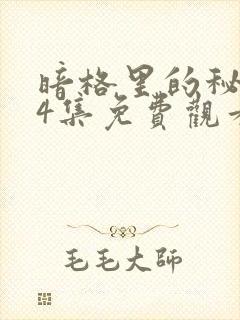 暗格里的秘
4集免費觀
毛毛大師